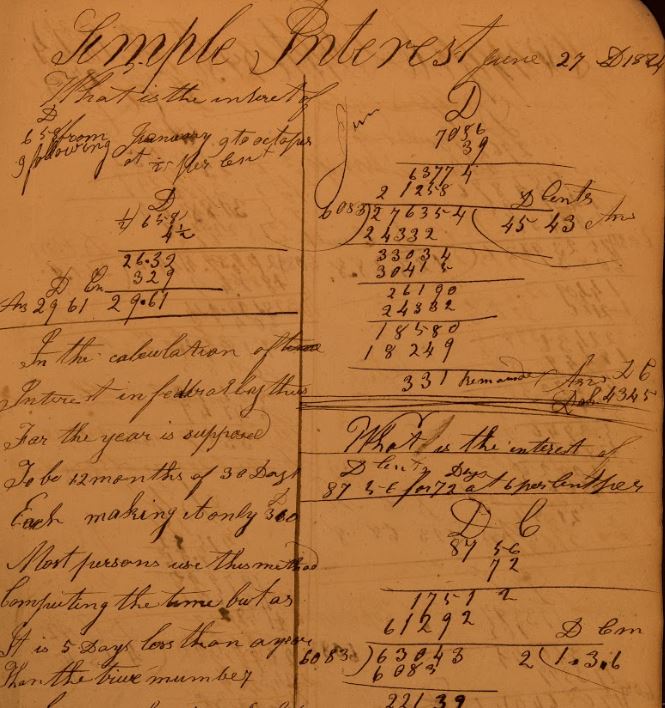 Simple Interest June 27 D 1824
What is the interet of
D
658 from January 9 to octoper
9 following at per Cent
D
1/2) 658
4 1/2
26.32
329
D Cn
Ans 29 61 29.61
In the calculation of time
Interest in federal
For the year is supposed
To be 12 months of 30 Days
Each making it only 360
Most persons use this method
Computing the time but as
It is 5 Days less than a year
Than the true number
D
7086
39
63774
21258
D Cents
6083)276354(45 43 Ans
24332
33034
30415
26190
24332
18580
18249
331 Remainder Ans D C
Dol 4345
What is the interest of
D Cents Days
87 56 for 72 at 6 per Cent per
D C
87 56
72
1751 2
61292
D C m
6083)63043 2(1.3.6
6083
22139